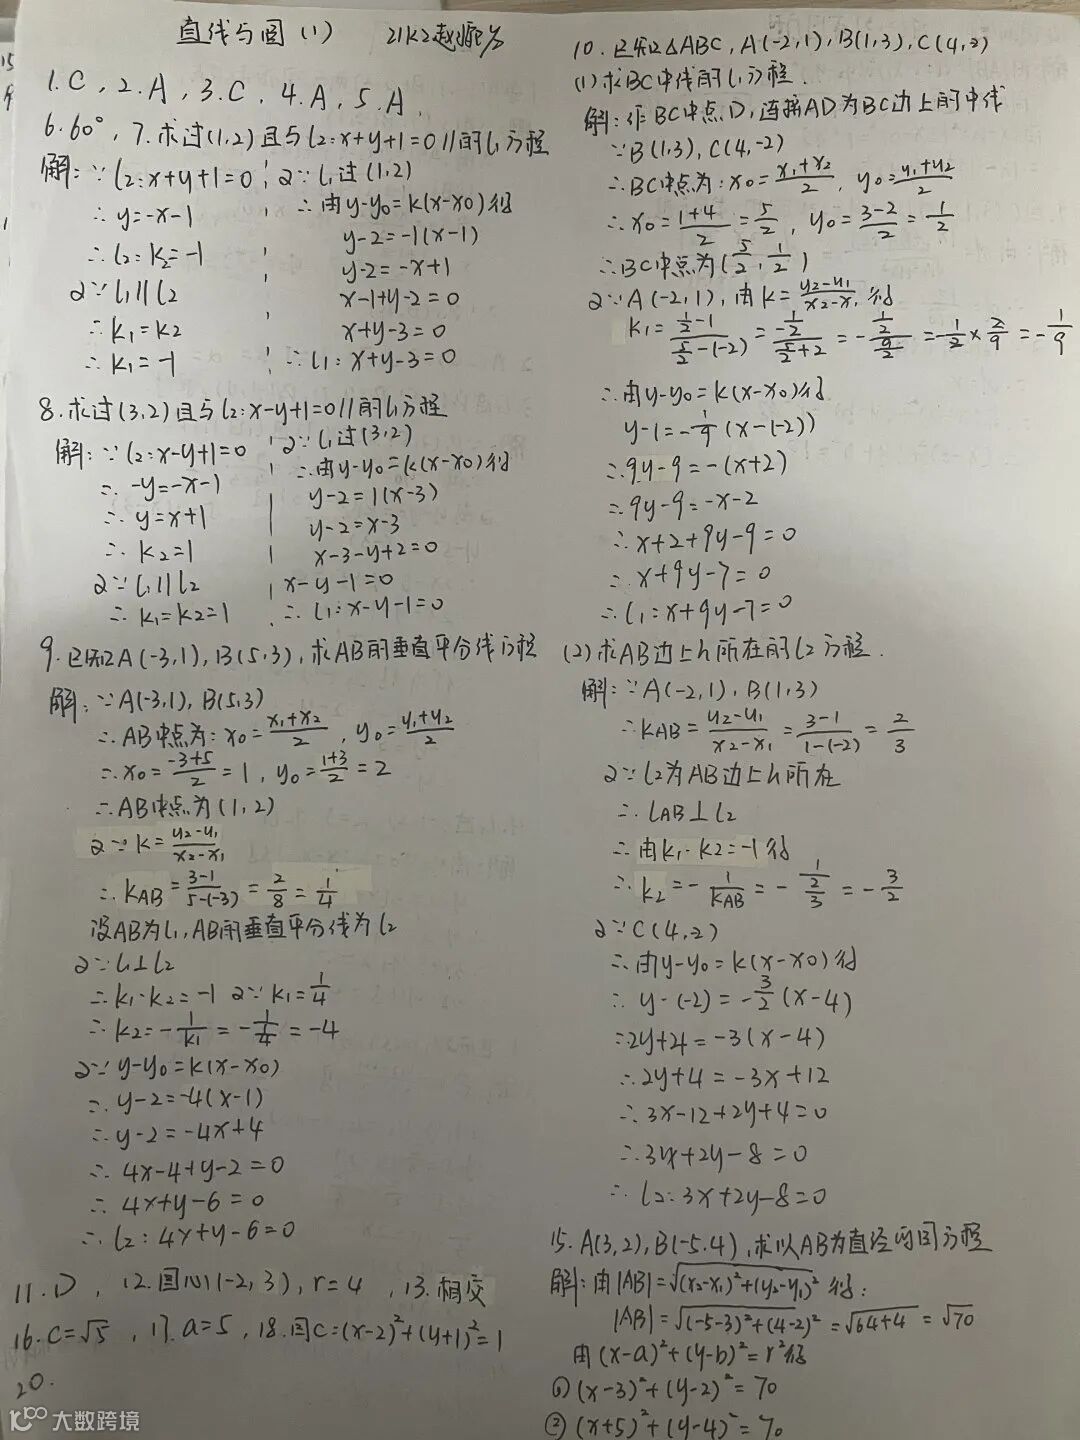 直线与圆(1) 21K2赵
1.C, 2.A, 3.C, 4.A, 5.A,
6.60°, 7.求过(1,2)且与l₂:x+y+1=0//的l₁方程
解:∵l₂:x+y+1=0
∴y=-x-1
∴l₂:k₂=-1
又∵l₁//l₂
∴k₁=k₂
∴k₁=-1
又∵l₁过(1,2)
∴由y-y₀=k(x-x₀)得
y-2=-1(x-1)
y-2=-x+1
x-1+y-2=0
x+y-3=0
∴l₁:x+y-3=0
8.求过(3,2)且与l₂:x-y+1=0//的l₁方程
解:∵l₂:x-y+1=0
∴-y=-x-1
∴y=x+1
∴k₂=1
又∵l₁//l₂
∴k₁=k₂=1
又∵l₁过(3,2)
∴由y-y₀=k(x-x₀)得
y-2=1(x-3)
y-2=x-3
x-3-y+2=0
x-y-1=0
∴l₁:x-y-1=0
9.已知A(-3,1),B(5,3),求AB的垂直平分线方程
解:∵A(-3,1),B(5,3)
∴AB中点为:x₀=(x₁+x₂)/2,y₀=(y₁+y₂)/2
∴x₀=(-3+5)/2=1,y₀=(1+3)/2=2
∴AB中点为(1,2)
又∵k=(y₂-y₁)/(x₂-x₁)
∴kAB=(3-1)/(5-(-3))=2/8=1/4
设AB为l₁,AB的垂直平分线为l₂
又∵l₁⊥l₂
∴k₁·k₂=-1 又∵k₁=1/4
∴k₂=-1/k₁=-1/(1/4)=-4
又∵y-y₀=k(x-x₀)
∴y-2=-4(x-1)
∴y-2=-4x+4
∴4x-4+y-2=0
∴4x+y-6=0
∴l₂:4x+y-6=0
11.D, 12.圆心(-2,3),r=4,13.相交
16.c=√5,17.a=5,18.圆C=(x-2)²+(y+1)²=1
20.
10.已知△ABC,A(-2,1),B(1,3),C(4,-2)
(1)求BC中线的l₁方程.
解:作BC中点D,连接AD为BC边上的中线
∵B(1,3),C(4,-2)
∴BC中点为:x₀=(x₁+x₂)/2,y₀=(y₁+y₂)/2
∴x₀=(1+4)/2=5/2,y₀=(3-2)/2=1/2
∴BC中点为(5/2,1/2)
又∵A(-2,1),由k=(y₂-y₁)/(x₂-x₁)得
k₁=(1/2-1)/(5/2-(-2))=(-1/2)/(5/2+2)=-(1/2)/(9/2)=-1/2×2/9=-1/9
∴由y-y₀=k(x-x₀)得
y-1=-1/9(x-(-2))
∴9y-9=-(x+2)
∴9y-9=-x-2
∴x+2+9y-9=0
∴x+9y-7=0
∴l₁:x+9y-7=0
(2)求AB边上h所在的l₂方程.
解:∵A(-2,1),B(1,3)
∴kAB=(y₂-y₁)/(x₂-x₁)=(3-1)/(1-(-2))=2/3
又∵l₂为AB边上h所在
∴lAB⊥l₂
∴由k₁·k₂=-1得
∴k₂=-1/kAB=-1/(2/3)=-3/2
又∵C(4,-2)
∴由y-y₀=k(x-x₀)得
∴y-(-2)=-3/2(x-4)
∴2y+4=-3(x-4)
∴2y+4=-3x+12
∴3x-12+2y+4=0
∴3x+2y-8=0
∴l₂:3x+2y-8=0
15.A(3,2),B(-5,4),求以AB为直径的圆方程
解:由|AB|=√(x₂-x₁)²+(y₂-y₁)²得:
|AB|=√(-5-3)²+(4-2)²=√64+4=√70
由(x-a)²+(y-b)²=r²得
①(x-3)²+(y-2)²=70
②(x+5)²+(y-4)²=70
大数跨境